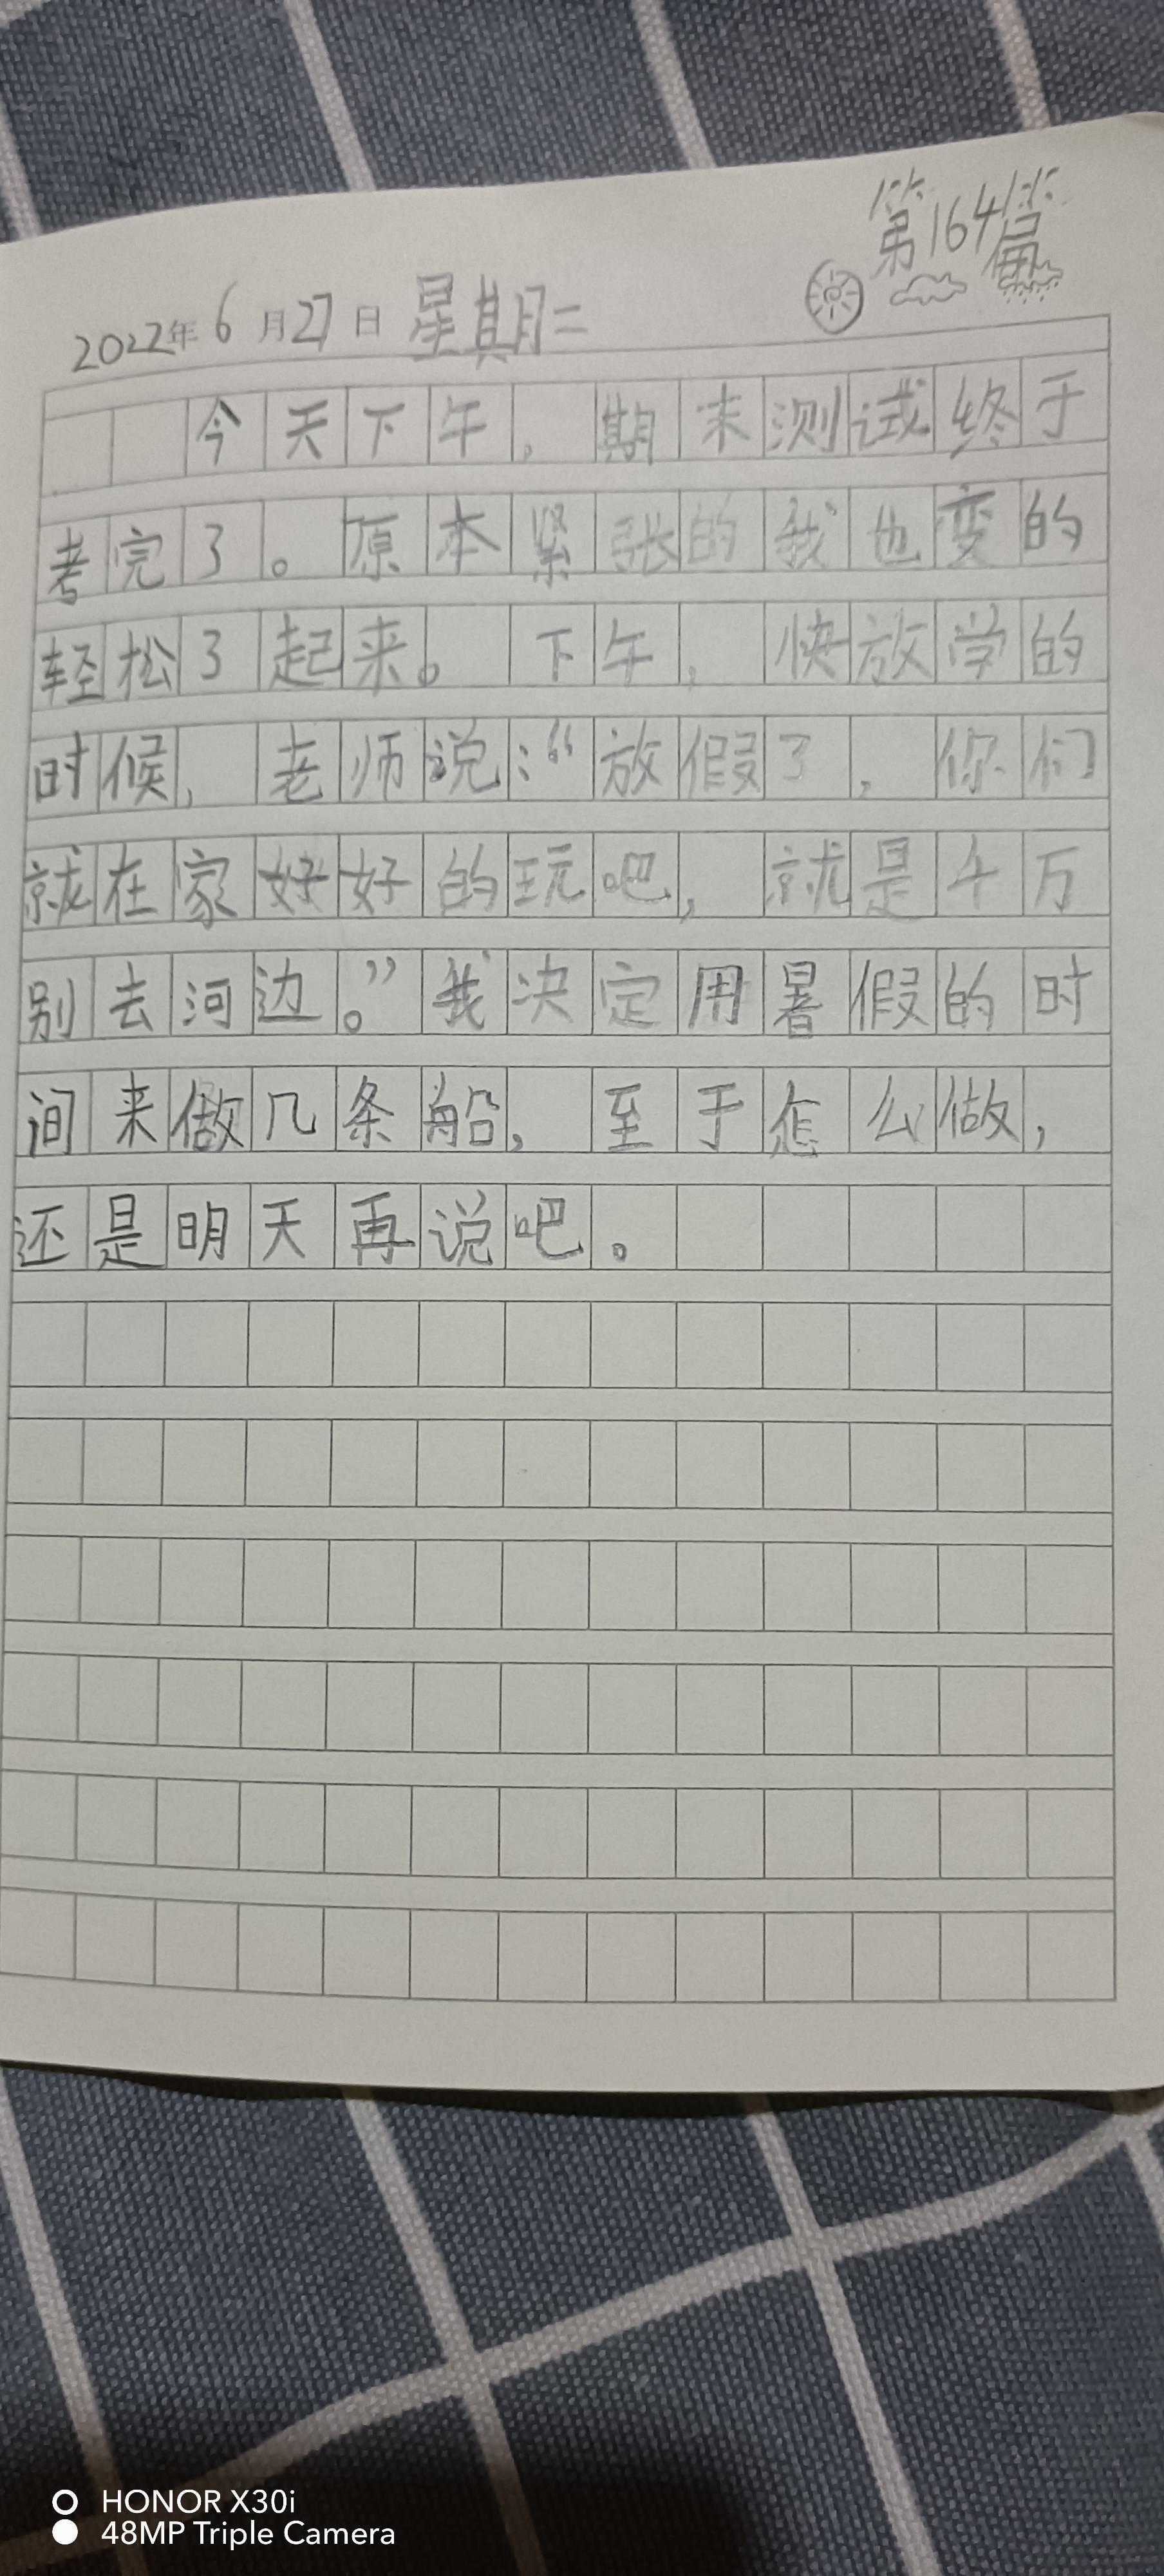 第164篇
2022年6月27日 星期二
今天下午，期末测试终于
考完了。原本紧张的我也变的
轻松了起来。下午，快放学的
时候，老师说：“放假了，你们
就在家好好的玩吧，就是千万
别去河边。”我决定用暑假的时
间来做几条船，至于怎么做，
还是明天再说吧。
HONOR X30i
48MP Triple Camera